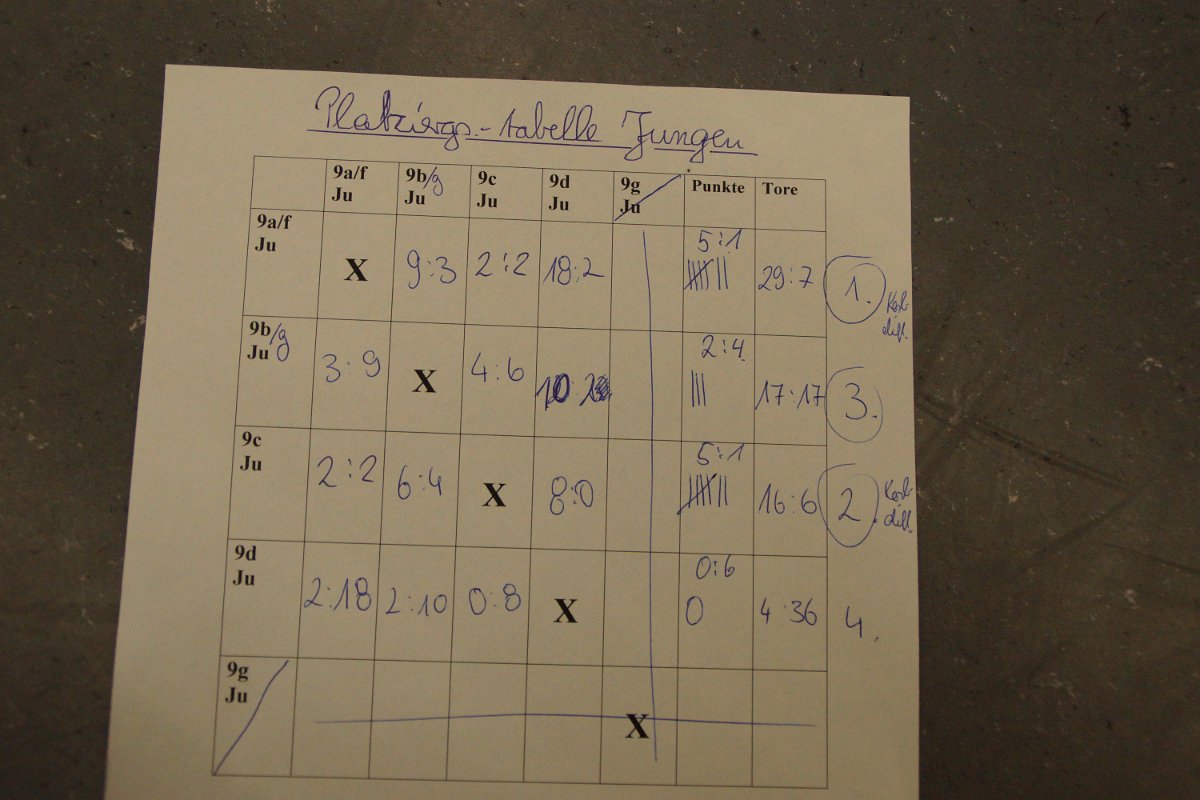 Platziergs.-tabelle Jungen
9a/f Ju 9b/g Ju 9c Ju 9d Ju 9g Ju Punkte Tore
9a/f Ju X 9:3 2:2 18:2 5:1 29:7 1. Korb diff.
9b/g Ju 3:9 X 4:6 2:4 17:17 3.
9c Ju 2:2 6:4 X 8:0 5:1 16:6 2. Korb diff.
9d Ju 2:18 2:10 0:8 X 0:6 0 4:36 4.
9g Ju X